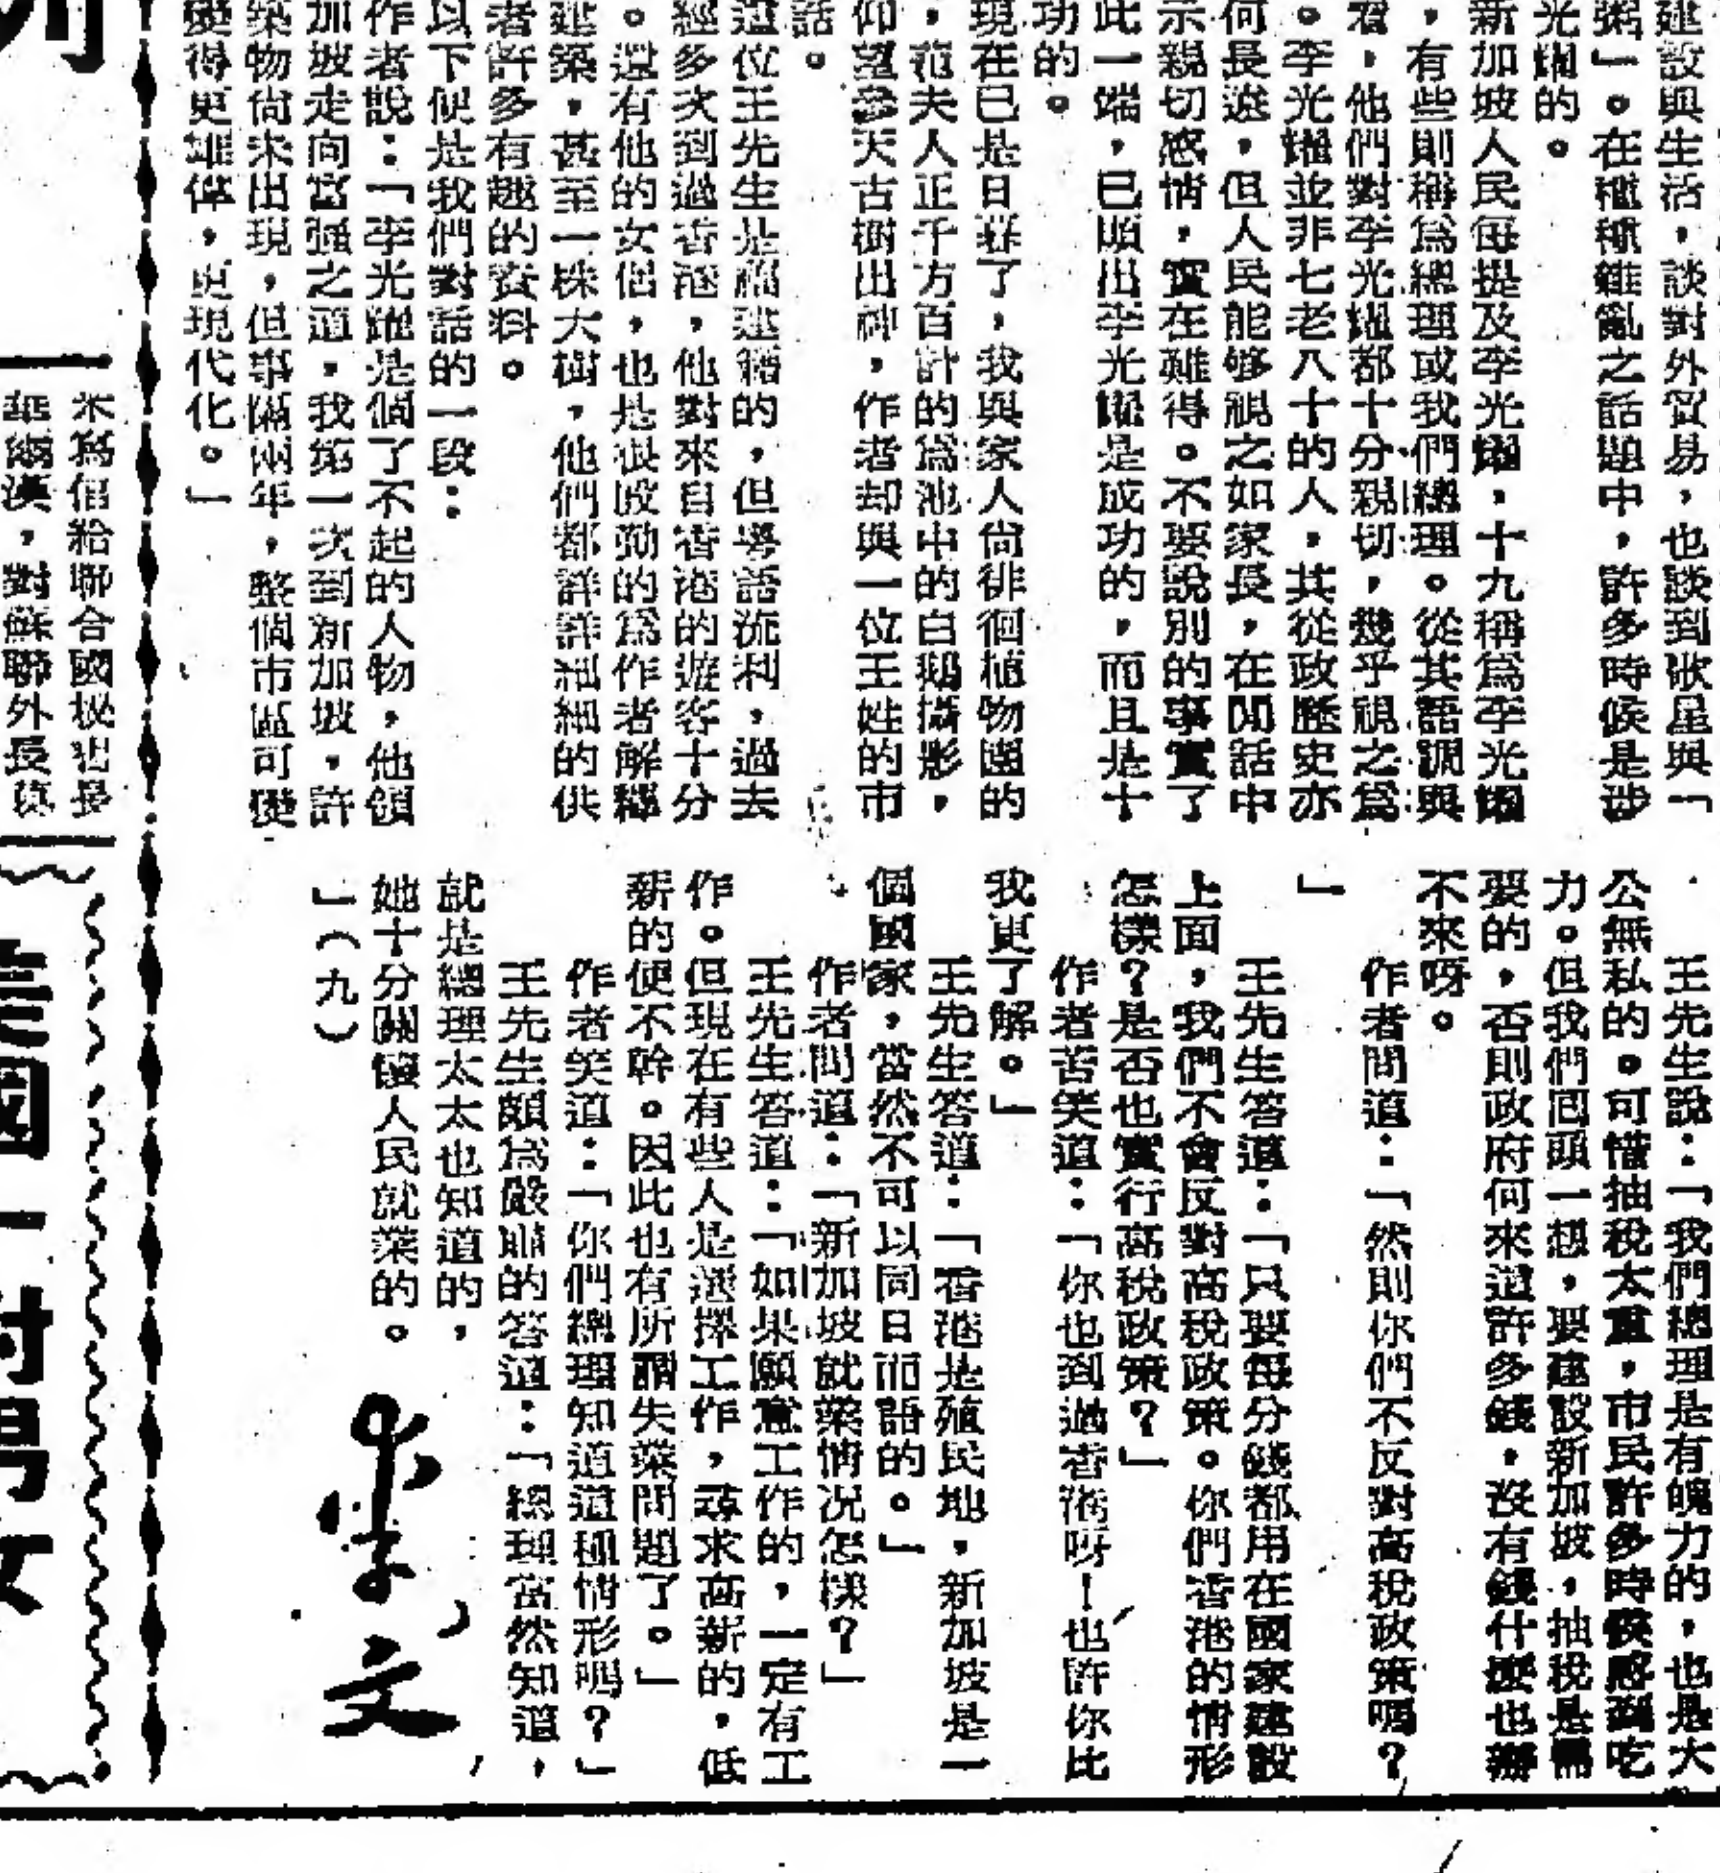 建設與生活，談對外貿易，也談到歌星與「
粥」。在種種雜亂之話題中，許多時候是涉
光耀的。
新加坡人民每提及李光耀，十九稱爲李光耀
，有些則稱爲總理或我們總理。從其語調與
看，他們對李光耀都十分親切，幾乎視之爲
。李光耀並非七老八十的人，其從政歷史亦
何長遠，但人民能够視之如家長，在閒話中
示親切感情，實在難得。不要說別的事實了
此一端，已顯出李光耀是成功的，而且是十
功的。
現在已是日莊了，我與家人尙徘徊植物園的
，范夫人正千方百計的爲池中的白鵝攝影，
仰望參天古樹出神，作者却與一位王姓的市
話。
這位王先生是福建籍的，但粵語流利，過去
經多次到過香港，他對來自香港的遊客十分
。還有他的女侶，也是很殷勤的爲作者解釋
建築，甚至一株大樹，他們都詳詳細細的供
者許多有趣的資料。
以下便是我們對話的一段：
作者說：「李光耀是個了不起的人物，他領
加坡走向富强之道，我第一次到新加坡，許
築物尙未出現，但事隔兩年，整個市區可變
變得更雄偉，更現代化。」
王先生說：「我們總理是有魄力的，也是大
公無私的。可惜抽稅太重，市民許多時候感到吃
力。但我們囘頭一想，要建設新加坡，抽稅是需
要的，否則政府何來這許多錢，沒有錢什麼也辦
不來呀。
作者問道：「然則你們不反對高稅政策嗎？
」
王先生答道：「只要每分錢都用在國家建設
上面，我們不會反對高稅政策。你們香港的情形
怎樣？是否也實行高稅政策？」
作者苦笑道：「你也到過香港呀！也許你比
我更了解。」
王先生答道：「香港是殖民地，新加坡是一
個國家，當然不可以同日而語的。」
作者問道：「新加坡就業情况怎樣？」
王先生答道：「如果願意工作的，一定有工
作。但現在有些人是選擇工作，尋求高薪的，低
薪的便不幹。因此也有所謂失業問題了。」
作者笑道：「你們總理知道這種情形嗎？」
王先生頗爲嚴肅的答道：「總理當然知道，
就是總理太太也知道的，
她十分關懷人民就業的。
」（九）
文
米爲信給聯合國秘書長
華爾漢，對蘇聯外長莫
美國一對男女